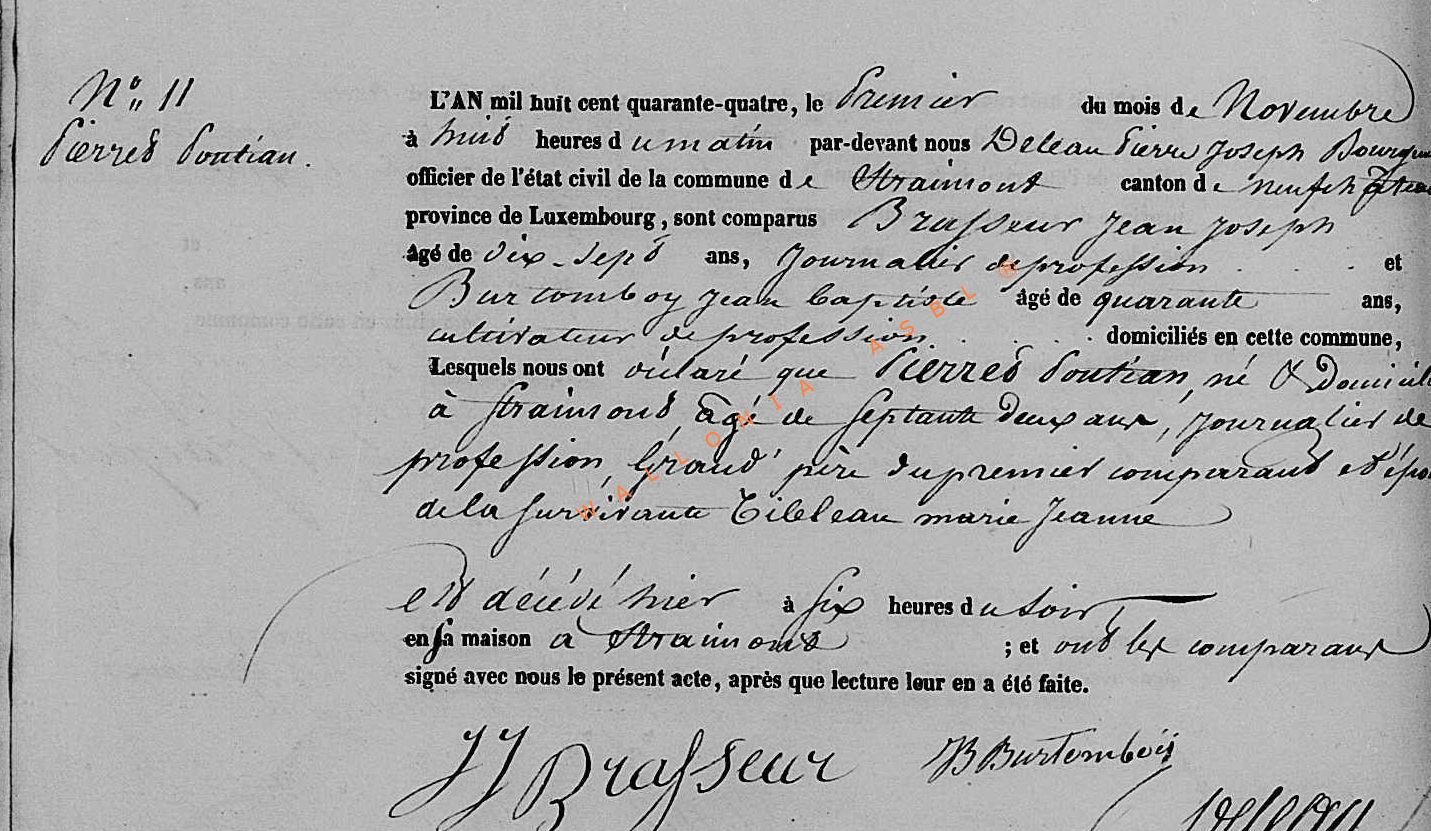 N° 11
Pierret Pontian.
L'AN mil huit cent quarante-quatre, le Premier du mois de Novembre
à huit heures du matin par-devant nous Deleau Pierre Joseph Bourgm
officier de l'état civil de la commune de Straimont canton de neufchateau
province de Luxembourg, sont comparus Brasseur Jean Joseph
âgé de dix-sept ans, Journalier de profession et
Burtomboy Jean Baptiste âgé de quarante ans,
cultivateur de profession domiciliés en cette commune,
Lesquels nous ont déclaré que Pierret Pontian, né & Domicil
à Straimont, âgé de septante deux ans, Journalier de
profession, Grand' père du premier comparant et épou
de la survivante marie Jeanne
est décédé hier à six heures du soir,
en sa maison à Straimont ; et ont les comparans
signé avec nous le présent acte, après que lecture leur en a été faite.
JJ Brasseur JB Burtomboÿ
WALLONIA ASBL ©